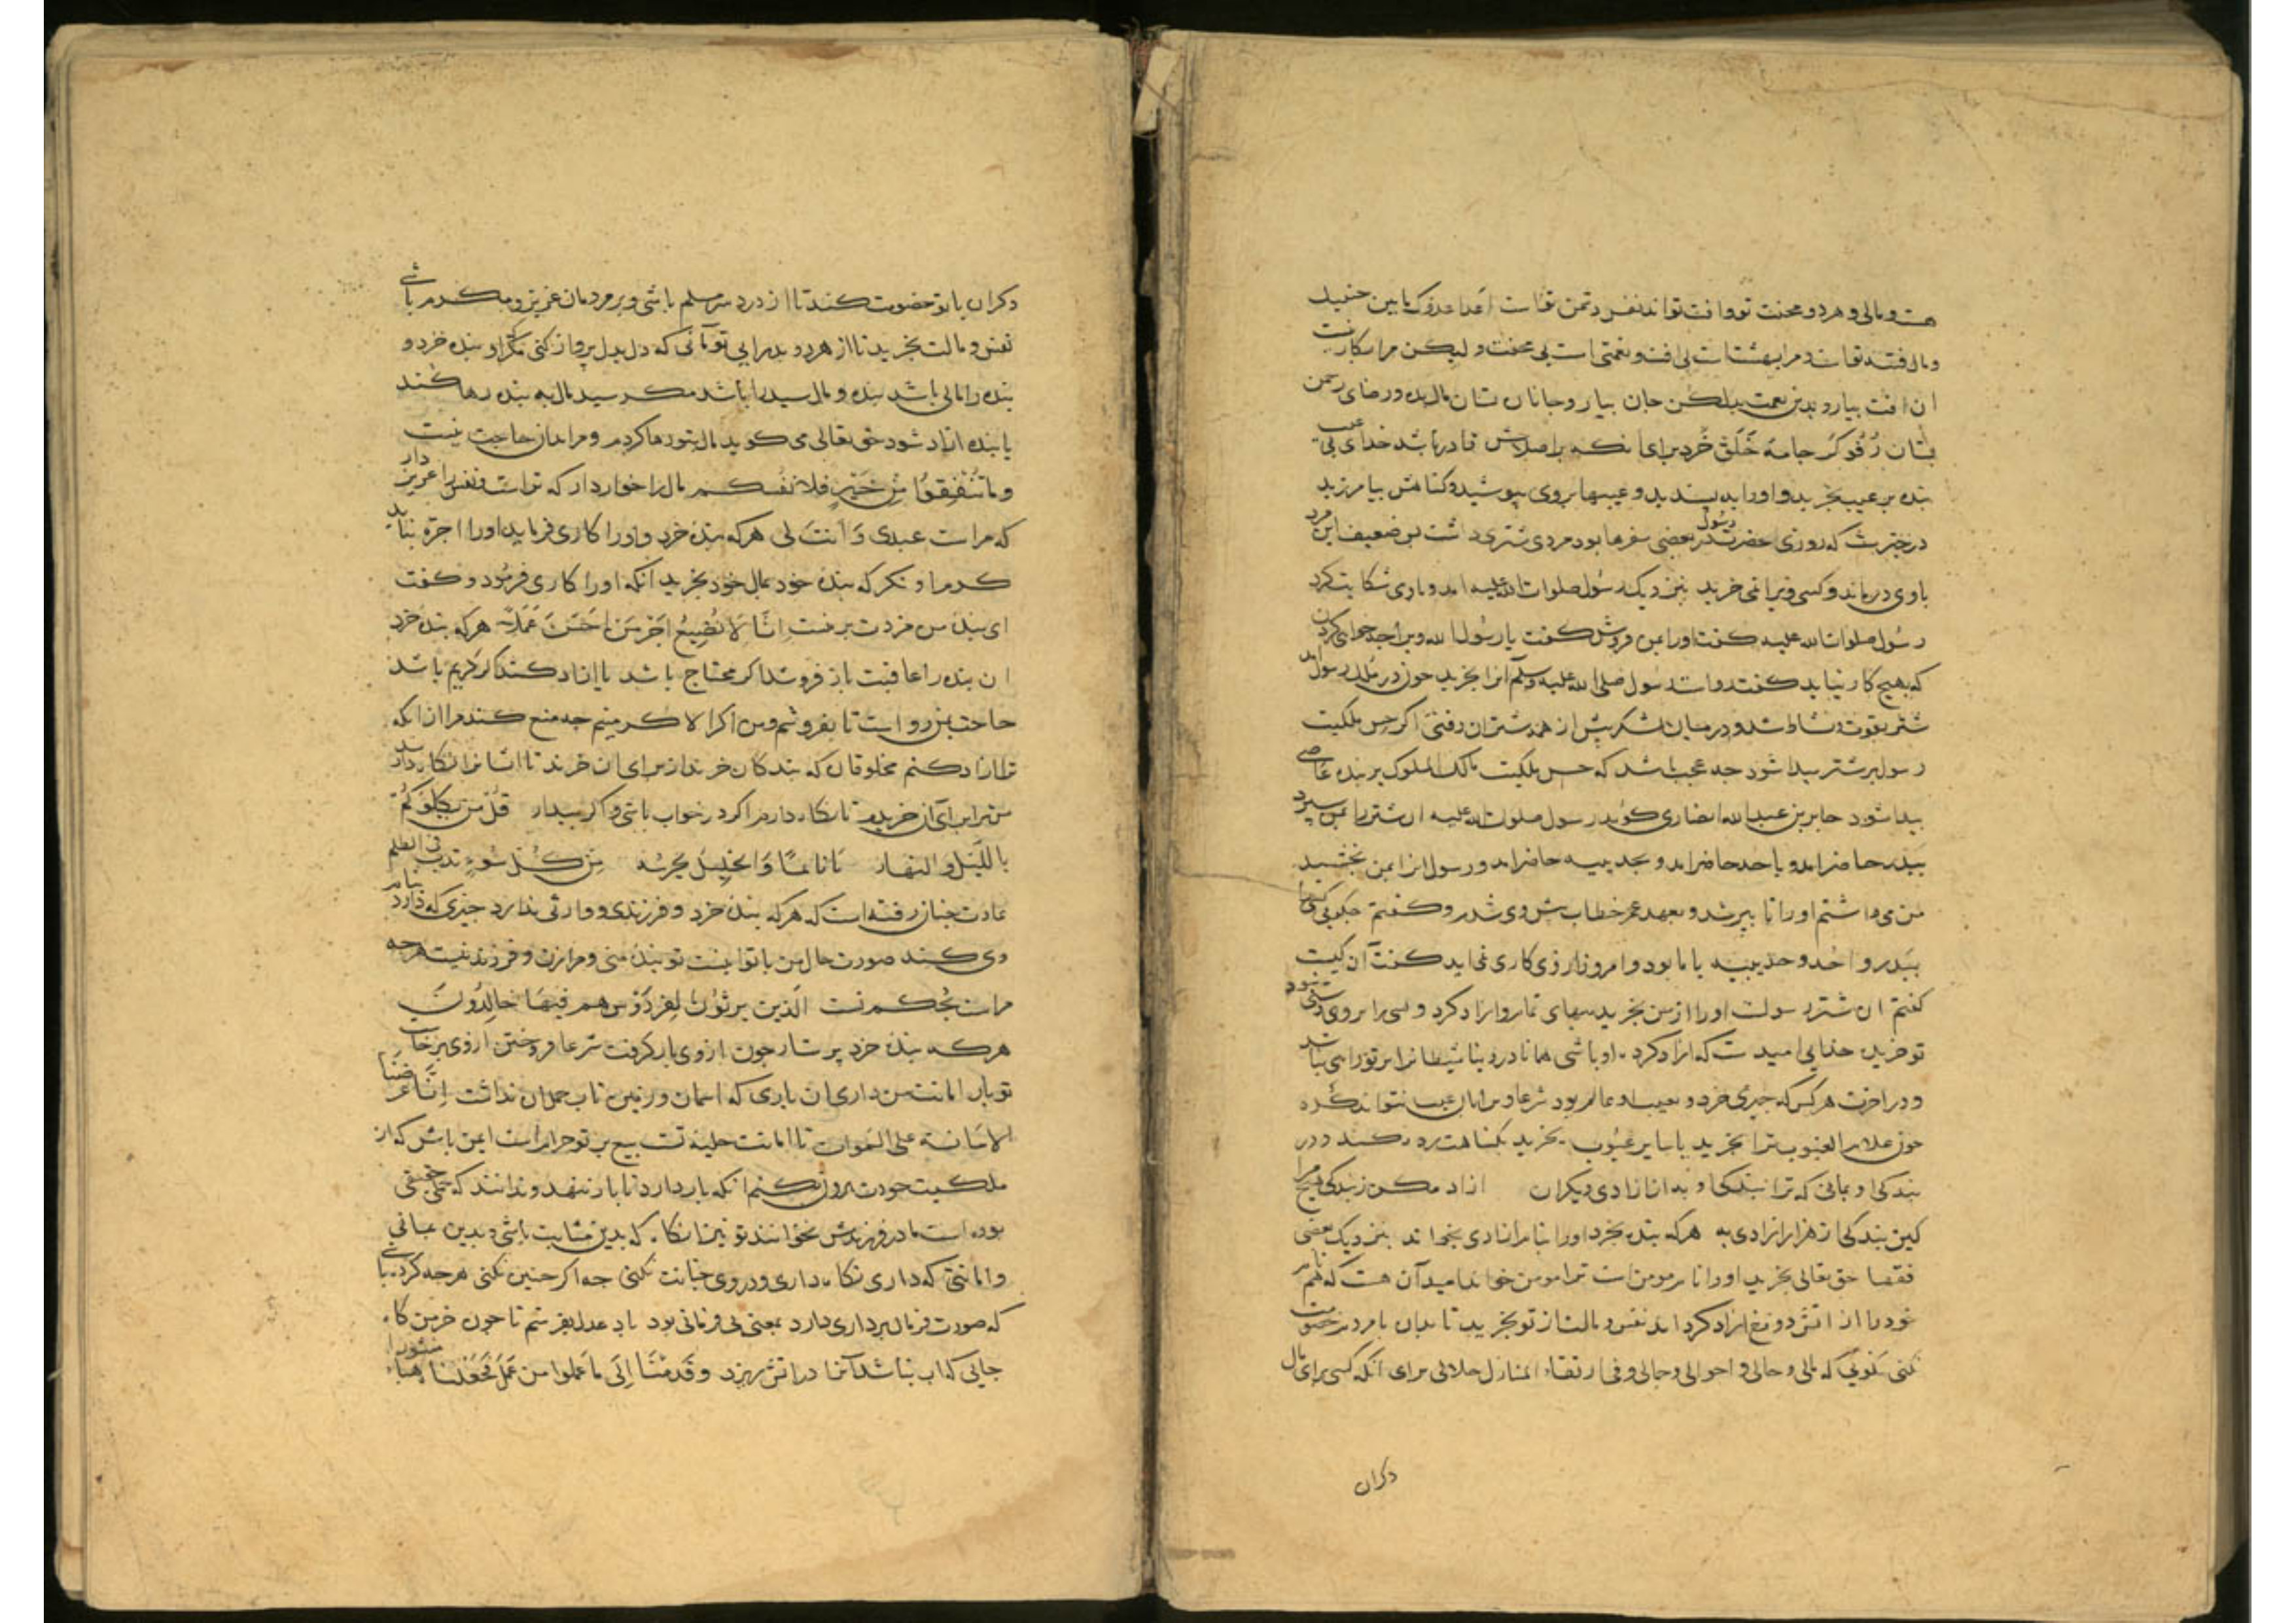 هست و مالی و هر دو محنت تو و آفت تواند نفس دشمن تو است اعدا عدوک ما بین جنبیک
و مال فتنه تو است و مرا بهشتی است بی آفت و نعمتی است بی محنت ولیکن مرا بکار نیست
ان آفت بیار و بدین نعمت بدل کن جان بیار و جانان بستان مال بده و رضای رحمن
بستان رفوگر جامه خلق خرد برای انکه بر اصلاحش قادر باشد خدای بی عیب
بنده پر عیب بخرید و او را بدید و عیبها بر وی بپوشید و گناهش بیامرزید
در خبرست که روزی حضرت رسول در بعضی سفرها بود مردی شتری داشت بس ضعیف این مرد
با وی در ماند و کسی ویرا نمی خرید بنزدیک رسول صلوات الله علیه امد و از وی شکایت کرد
رسول صلوات الله علیه کفت او را بمن فروش کفت یا رسول الله ویرا چه خواهی کردن
که بهیچ کار نیاید کفت رواست رسول صلی الله علیه وسلم انرا بخرید چون در ملک رسول آمد
شتر بقوت و نشاط شد و در میان لشکر پیش از همه شتران رفتی اکر حس ملکیت
رسول بر شتر پیدا شود چه عجب باشد که حس ملکیت مالک الملوک بر بنده عاصی
پیدا شود جابر بن عبد الله انصاری کوید رسول صلوات الله علیه ان شتر را بمن سپرد
ببدر حاضر امد و باحد حاضر امد و بحدیبیه حاضر امد و رسول انرا بمن بخشید
من می داشتم او را تا پیر شد و بعهد عمر خطاب پیش وی شدم و کفتم چکویی کسی را
ببدر و احد و حدیبیه با ما بود و امروز از وی کاری نمی اید کفت آن کیست
کفتم ان شتر رسولست او را از من بخرید ببهای تمام و ازاد کرد و کسی را بر وی دستی نبود
تو خریده خدایی امیدست که ازاد کرده او باشی همانا در دنیا شیطانرا بر تو راهی نباشد
و در اخرت هر کس که چیزی خرد و بعیب او عالم بود شرعا ویرا بدان عیب نتواند که رد
چون علام الغیوب ترا بخرید با سایر عیوب بخرید بکناهت رد نکند در
بندکی او بمانی که ترا بندکی او به از ازادی دیکران ازاد مکن ز بندکی هیچ مرا
کین بندکی از هزار ازادی به هر که بنده بخرد او را بنام ازادی بخواند بنزدیک بعضی
فقها حق تعالی بخرید او را نام مومن است ترا مومن خواند امید آن هست که هم نام
خود را از اتش دوزخ ازاد کرداند نفس و مالت از تو بخرید تا بدان با مردم خصومت
نکنی نکویی که مالی و حالی و احوالی و جمالی و فی ارتقاء المنازل جلالی برای آنکه کسی برای مال
دکران
دکران با تو خصومت نکند تا از درد سر مسلم باشی و بر مردمان عزیز و مکرم باشی
نفس و مالت بخرید تا از هر دو بدر ایی توانی که دل بدل پرواز کنی مکر او بنده خرد و
بنده را مالی باشد بنده و مال سید را باشد مکر سید مال به بنده رها کند
یا بنده ازاد شود حق تعالی می کوید مال بتو رها کردم و مرا بدان حاجت نیست
و ما تنفقوا من خیر فلانفسکم مال را خوار دار که تراست و نفس را عزیز دار
که مراست عبدی و انت لی هر که بنده خرد و او را کاری فرماید او را اجره نباید
کرم او نکر که بنده خود بمال خود بخرید آنکه او را کاری فرمود و کفت
ای بنده من مزدت بر منست انا لا نضیع اجر من احسن عملا هر که بنده خرد
ان بنده را عاقبت باز فروشد اکر محتاج باشد یا ازاد کند اکر کریم باشد
حاجت بمن روا نیست تا بفروشم و من اکرم الاکرمینم چه منع کند مرا از انکه
ترا ازاد کنم مخلوقان که بندکان خرند از برای ان خرند تا ایشانرا نکاه دارند
من ترا برای آن خریدم تا نکاه دارم اکر در خواب باشی و اکر بیدار قل من یکلوکم
باللیل والنهار یا نائما و الخلیل یحرسه من کل سوء یدب فی الظلم
عادت چنان رفته است که هر که بنده خرد و فرزندی و وارثی ندارد چیزی که دارد بنام
وی کند صورت حال من با تو اینست تو بنده منی و مرا زن و فرزند نیست هر چه
مراست بحکم تست الذین یرثون الفردوس هم فیها خالدون
هر که بنده خرد پرستار چون از وی بار کرفت شرعا فروختن از وی برخاست
تو بار امانت من داری ان باری که اسمان و زمین تاب حمل ان نداشت انا عرضنا
الامانة علی السموات تا امانت حلیه تست بیع بر تو حرامست ایمن باش که از
ملکیت خودت برون نکنم انکه بار دارد تا بار ننهد و ندانند که حملی حقیقی
بوده است مادر فرزندش نخوانند تو نیز انکاه که بدین مثابت باشی و بدین بمانی
و امانتی که داری نکاه داری و در وی خیانت نکنی چه اکر چنین نکنی هر چه کرده باشی
که صورت فرمان برداری دارد بمعنی بی فرمانی بود باد عدل بفرستم تا چون خرمن کاه
جایی که اب نباشد آنرا در اتش ریزد و قدمنا الی ما عملوا من عمل فجعلناه هباء منثورا